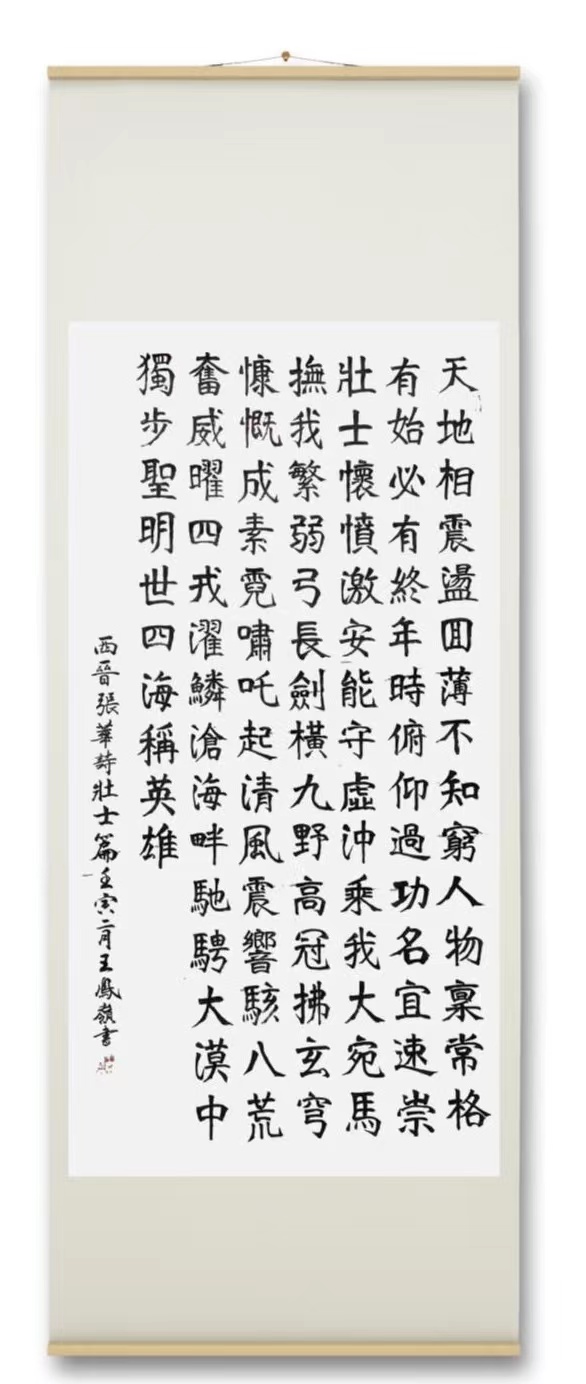 天地相震盪囬薄不知窮人物稟常格
有始必有終年時俯仰過功名宜速崇
壯士懷憤激安能守虛沖乘我大宛馬
撫我繁弱弓長劍橫九野高冠拂玄穹
慷慨成素霓嘯吒起清風震響駭八荒
奮威曜四戎濯鱗滄海畔馳騁大漠中
獨步聖明世四海稱英雄
西晉張華詩壯士篇壬寅二月王鳳嶺書